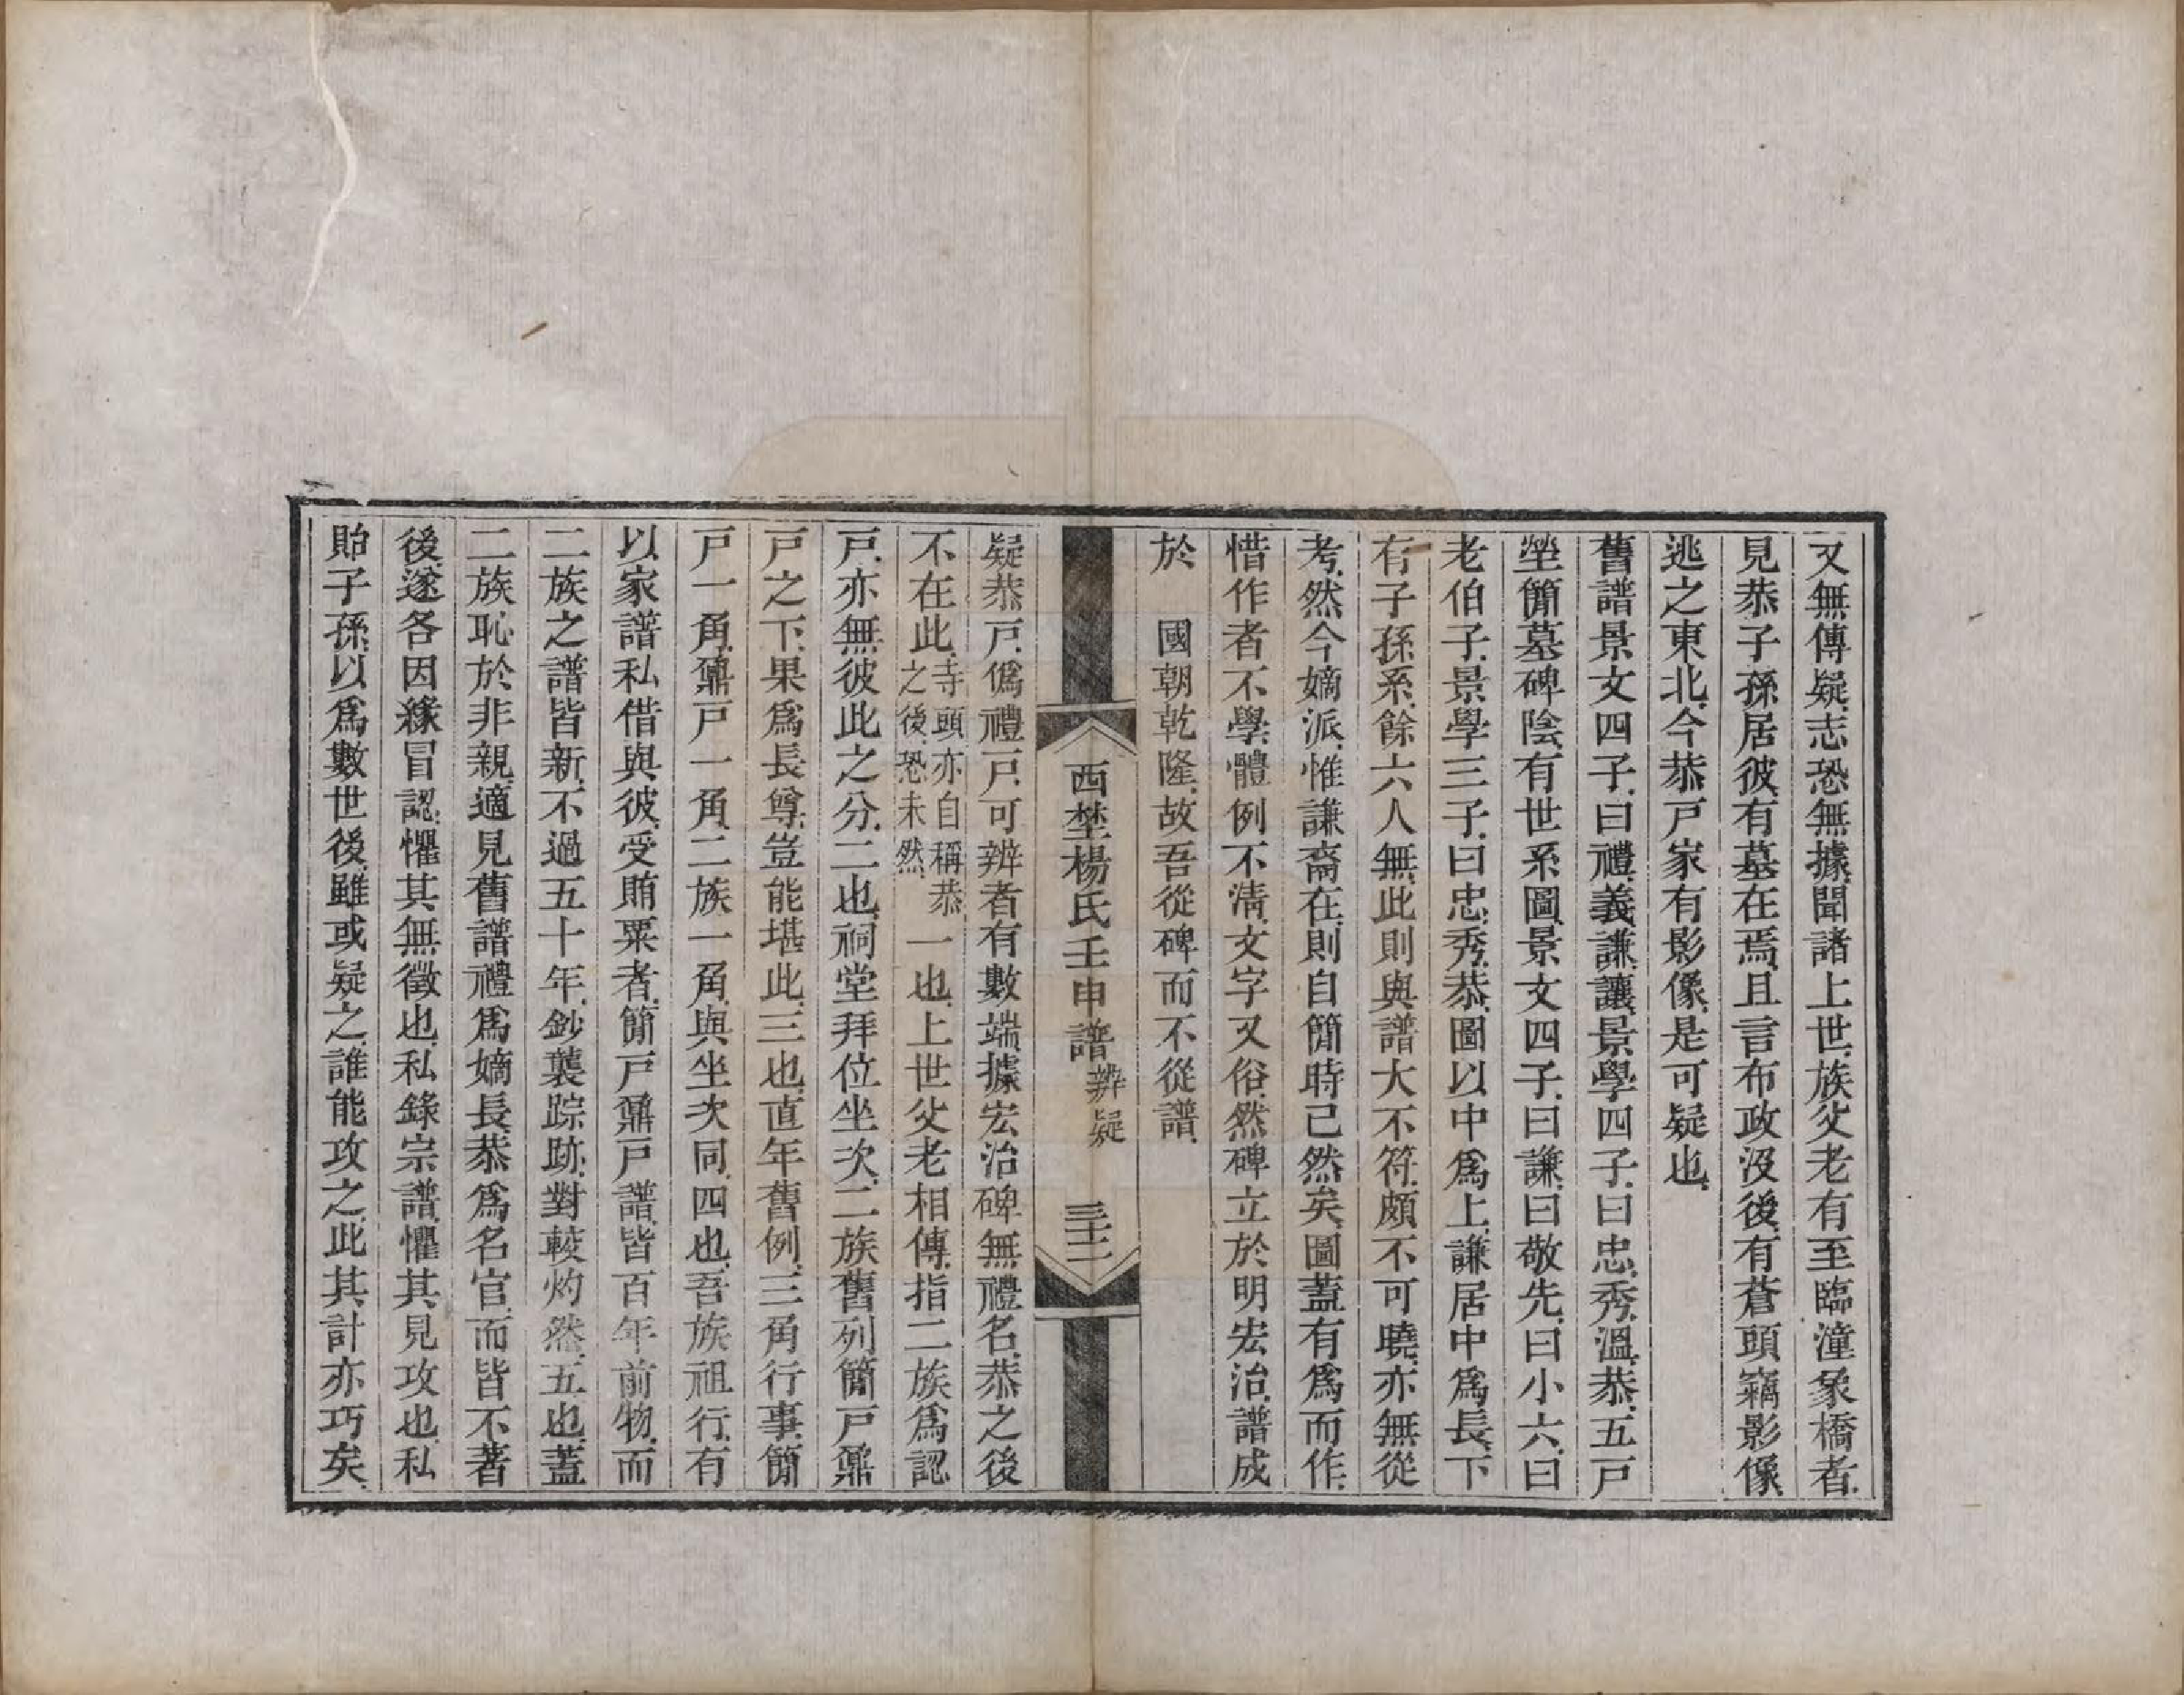 又無傳疑志恐無據聞諸上世族父老有至臨潼象橋者
見恭子孫居彼有墓在焉且言布政沒後有蒼頭竊影像
逃之東北今恭戸家有影像是可疑也
舊譜景文四子曰禮義謙讓景學四子曰忠秀溫恭五戸
塋簡墓碑陰有世系圖景文四子曰謙曰敬先曰小六曰
老伯子景學三子曰忠秀恭圖以中爲上謙居中爲長下
有子孫系餘六人無此則與譜大不符頗不可曉亦無從
考然今嫡派惟謙裔在則自簡時已然矣圖蓋有爲而作
惜作者不學體例不清文字又俗然碑立於明宏治譜成
於　國朝乾隆故吾從碑而不從譜
西埜楊氏壬申譜 辨疑 三十二
疑恭戸僞禮戸可辨者有數端據宏治碑無禮名恭之後
不在此 寺頭亦自稱恭之後恐未然 一也上世父老相傳指二族爲認
戸亦無彼此之分二也祠堂拜位坐次二族舊列簡戸鼐
戸之下果爲長尊豈能堪此三也直年舊例三角行事簡
戸一角鼐戸一角二族一角與坐次同四也吾族祖行有
以家譜私借與彼受賄粟者簡戸鼐戸譜皆百年前物而
二族之譜皆新不過五十年鈔襲踪跡對較灼然五也蓋
二族恥於非親適見舊譜禮爲嫡長恭爲名官而皆不著
後遂各因緣冒認懼其無徵也私錄宗譜懼其見攻也私
貽子孫以爲數世後雖或疑之誰能攻之此其計亦巧矣